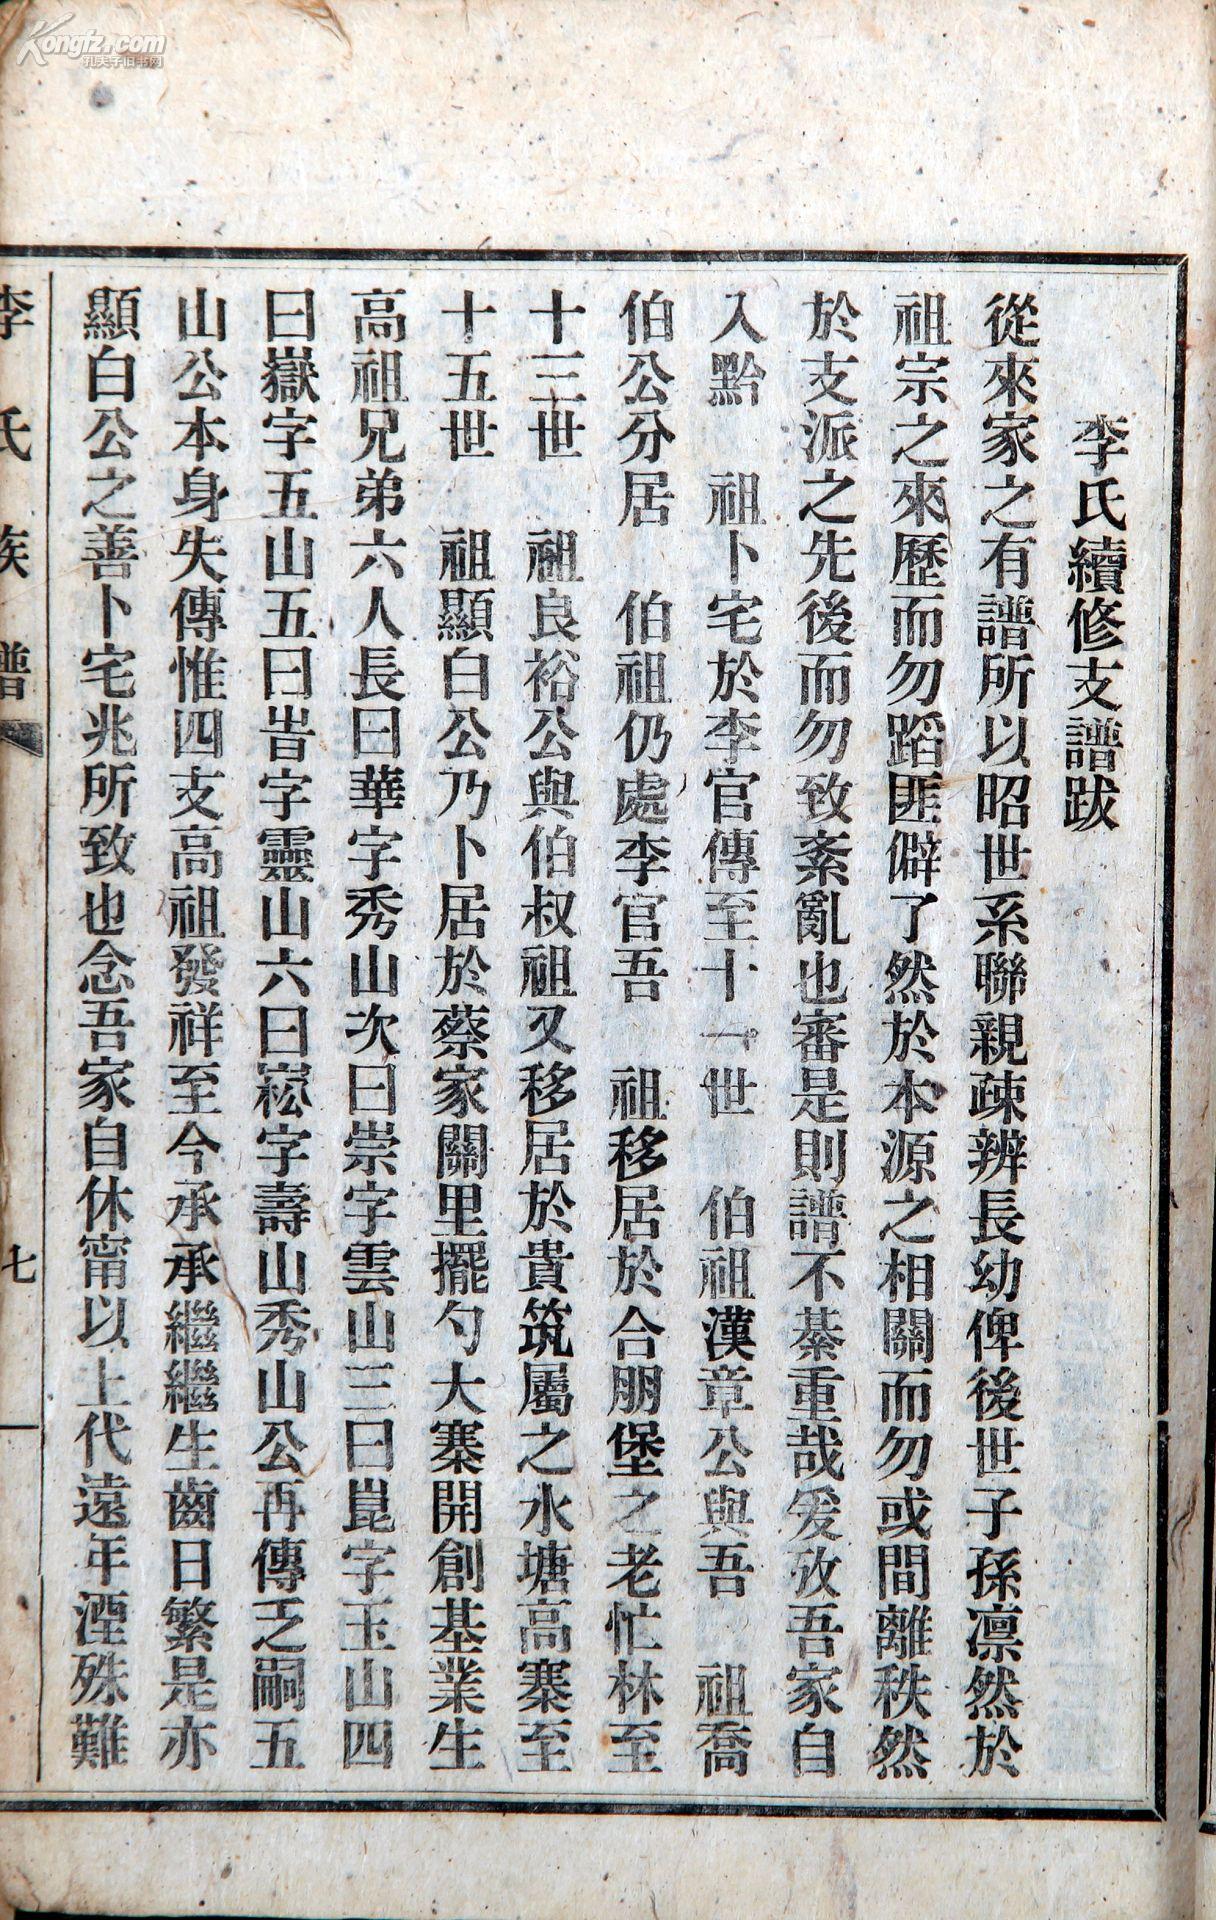 李氏續修支譜跋
從來家之有譜所以昭世系聯親疎辨長幼俾後世子孫凛然於
祖宗之來歷而勿蹈匪僻了然於本源之相關而勿或間離秩然
於支派之先後而勿致紊亂也審是則譜不綦重哉爰攷吾家自
入黔　祖卜宅於李官傳至十一世　伯祖漢章公與吾　祖喬
伯公分居　伯祖仍處李官吾　祖移居於合朋堡之老忙林至
十三世　祖良裕公與伯叔祖又移居於貴筑屬之水塘高寨至
十五世　祖顯白公乃卜居於蔡家關里擺勺大寨開創基業生
高祖兄弟六人長曰華字秀山次曰崇字雲山三曰崑字玉山四
曰嶽字五山五曰岩字靈山六曰崧字壽山秀山公再傳乏嗣五
山公本身失傳惟四支高祖發祥至今承承繼繼生齒日繁是亦
顯白公之善卜宅兆所致也念吾家自休甯以上代遠年湮殊難
李氏族譜
七
Kongfz.com
孔夫子旧书网